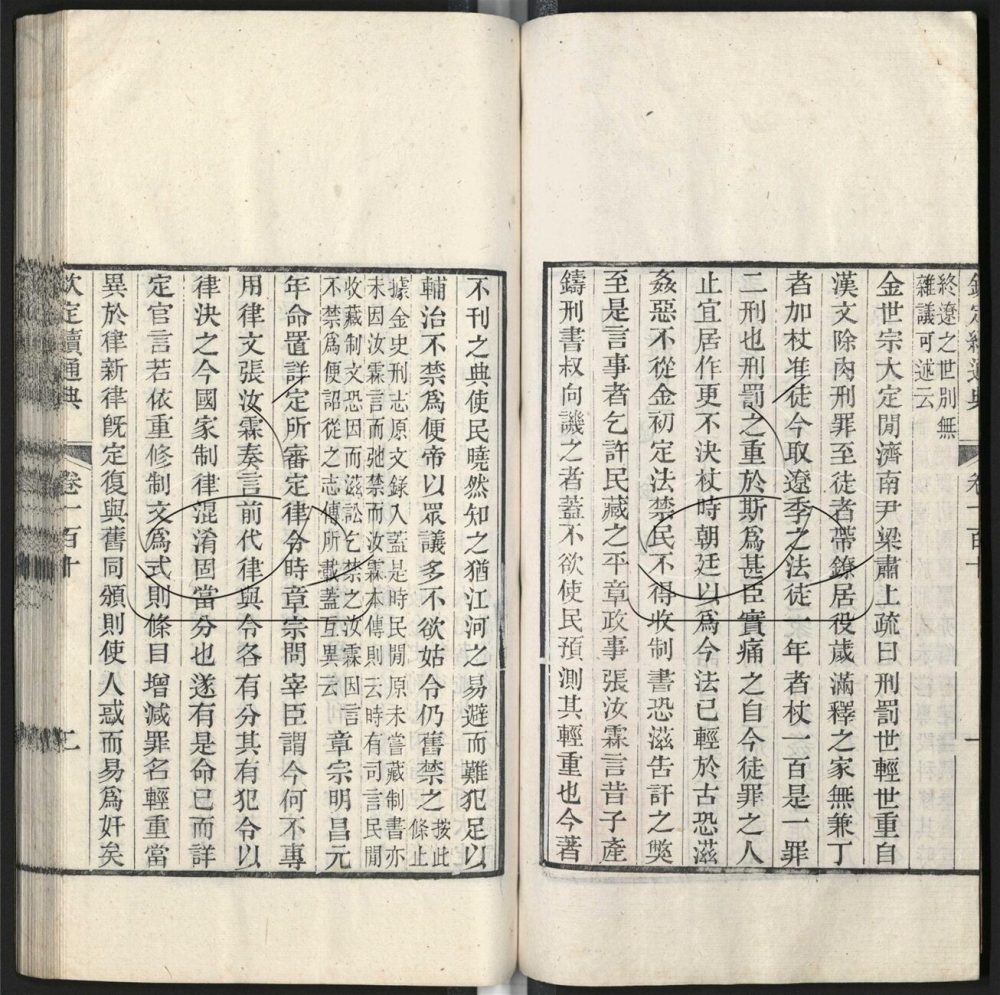 欽定續通典
卷一百十
一
終遼之世別無
雜議可述云
金世宗大定閒濟南尹梁肅上疏曰刑罰世輕世重自
漢文除肉刑罪至徒者帶鐐居役歲滿釋之家無兼丁
者加杖准徒今取遼季之法徒一年者杖一百是一罪
二刑也刑罰之重於斯爲甚臣實痛之自今徒罪之人
止宜居作更不決杖時朝廷以爲今法已輕於古恐滋
姦惡不從金初定法禁民不得收制書恐滋告訐之獘
至是言事者乞許民藏之平章政事張汝霖言昔子產
鑄刑書叔向譏之者蓋不欲使民預測其輕重也今著
不刊之典使民曉然知之猶江河之易避而難犯足以
輔治不禁爲便帝以眾議多不欲姑令仍舊禁之按此
條止
據金史刑志原文錄入蓋是時民閒原未嘗藏制書亦
未因汝霖言而弛禁而汝霖本傳則云時有司言民閒
收藏制文恐因而滋訟乞禁之汝霖因言
不禁爲便詔從之志傳所載蓋互異云
章宗明昌元
年命置詳定所審定律令時章宗問宰臣謂今何不專
用律文張汝霖奏言前代律與令各有分其有犯令以
律決之今國家制律混淆固當分也遂有是命已而詳
定官言若依重修制文爲式則條目增減罪名輕重當
異於律新律旣定復與舊同頒則使人惑而易爲奸矣
欽定續通典
卷一百十
二